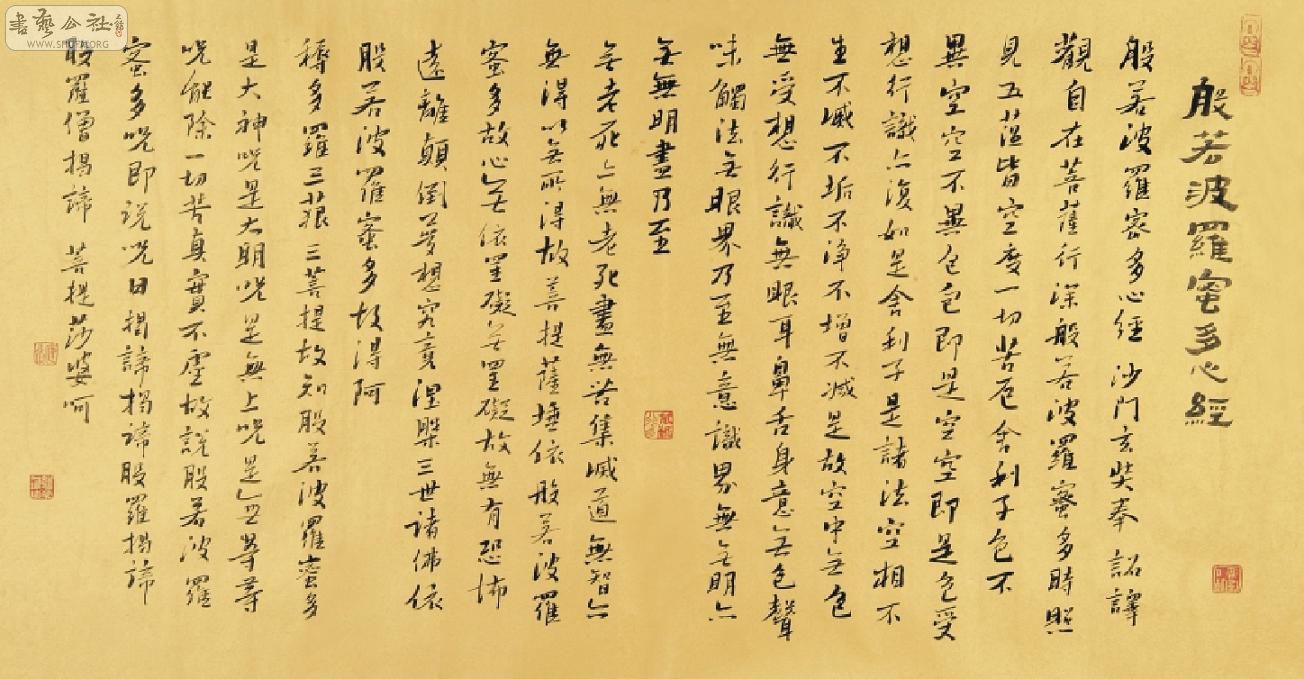 般若波羅蜜多心經
般若波羅密多心經 沙門玄奘奉 詔譯
觀自在菩薩行深般若波羅蜜多時照
見五蕰皆空度一切苦厄舍利子色不
異空空不異色色即是空空即是色受
想行識亦復如是舍利子是諸法空相不
生不滅不垢不淨不增不減是故空中無色
無受想行識無眼耳鼻舌身意無色聲
味觸法無眼界乃至無意識界無無明亦
無無明盡乃至
無老死亦無老死盡無苦集滅道無智亦
無得以無所得故菩提薩埵依般若波羅
蜜多故心無依罣礙無罣礙故無有恐怖
遠離顛倒夢想究竟涅槃三世諸佛依
般若波羅蜜多故得阿
耨多羅三藐三菩提故知般若波羅蜜多
是大神咒是大明咒是無上咒是無等等
咒能除一切苦真實不虛故說般若波羅
蜜多咒即说咒曰揭諦揭諦般羅揭諦
般羅僧揭諦 菩提莎婆呵
書藝公社
WWW.SHUFA.ORG